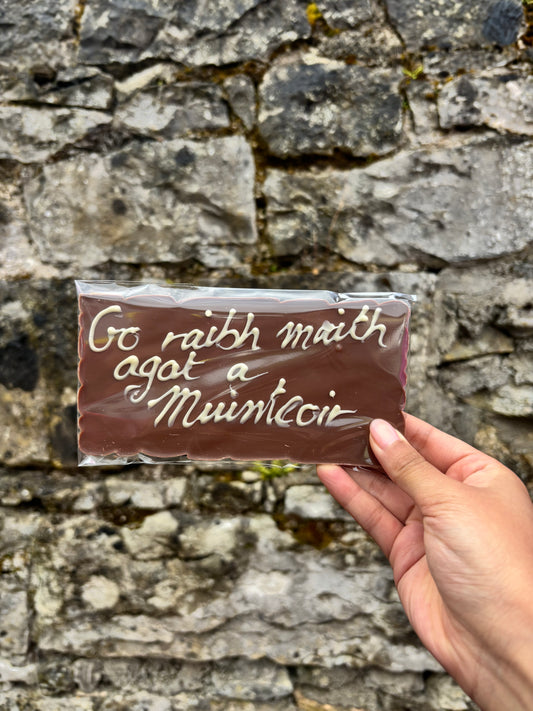 Go raibh maith
agat a
Muinteoir